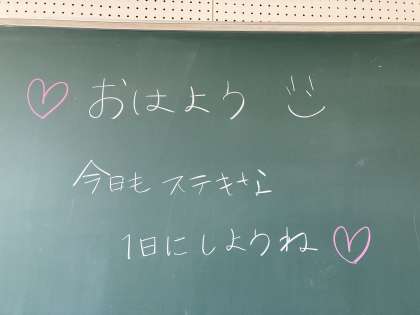 おはよう
今日もステキな
1日にしようね